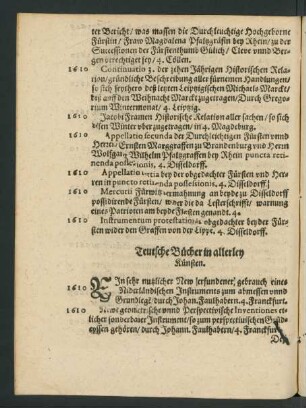 ter Bericht/ was massen die Durchleuchtige Hochgeborne
Fürstin/ Fraw Magdalena Pfaltzgräfin bey Rhein/ zu der
Succession der Fürstenthumb Gülich/ Cleve vnnd Ber-
gen berechtiget sey/ 4. Cöllen.
1610 Continuatio 1. der zehen Jährigen Historischen Rela-
tion/ gründliche Beschreibung aller fürnemen Handlungen/
so sich seythero deß letzten Leipzigischen Michaels Marckt/
biß auff den Weihnacht Marckt zugetragen/ Durch Grego-
rium Wintermonat/ 4. Leipzig.
1610 Jacobi Framen Historische Relation aller sachen/ so sich
sen Winter vber zugetragen/ in 4. Magdeburg.
1610 Appellatio secunda der Durchleichtigen Fürsten vnnd
Herrn/ Ernsten Marggraffen zu Brandenburg vnd Herrn
Wolffgang Wilhelm Pfaltzgraffen bey Rhein puncta reti-
nenda possessionis, 4. Disseldorff.
1610 Appellatio tertia bey der obgedachter Fürsten vnd Her-
ren in puncto retinenda possessionis, 4. Disseldorff.
1610 Mercurii Fürwitz vermahnung an beyde zu Disseldorff
possidirende Fürsten/ wider die da Lesterschrifft/ war-
nung eines Patrioten am beyde Fürsten genandt. 4.
1610 Instrumentum protestationis obgedachter beyder Für-
sten wider den Graffen von der Lippe. 4. Disseldorff.
Teutsche Bücher in allerley
Künsten.
1610 Ein sehr nutzlicher New erfundener gebrauch eines
Niderländischen Instruments zum abmessen vnnd
Grundlegē durch Johan. Faulhabern. 4. Franckfurt.
1610 Newe geometrische vnd Perspectivische Inventiones et-
licher sonderbarer Instrument/ so zum perspectivischen Grund-
reyssen gehören/ durch Johann. Faulhabern/ 4. Franckfurt